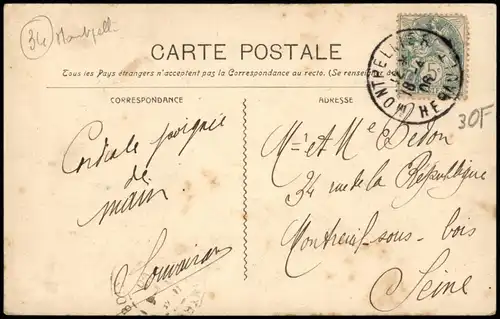 34 Montpelli
CARTE POSTALE
Tous les Pays étrangers n'acceptent pas la Correspondance au recto. (Se renseigner
CORRESPONDANCE
ADRESSE
MONTPELLIER
HERAULT
30F
Cordiale poignée
de
main
Mr et Me Dedon
34 rue de la République
Montreuil-sous-bois
Seine